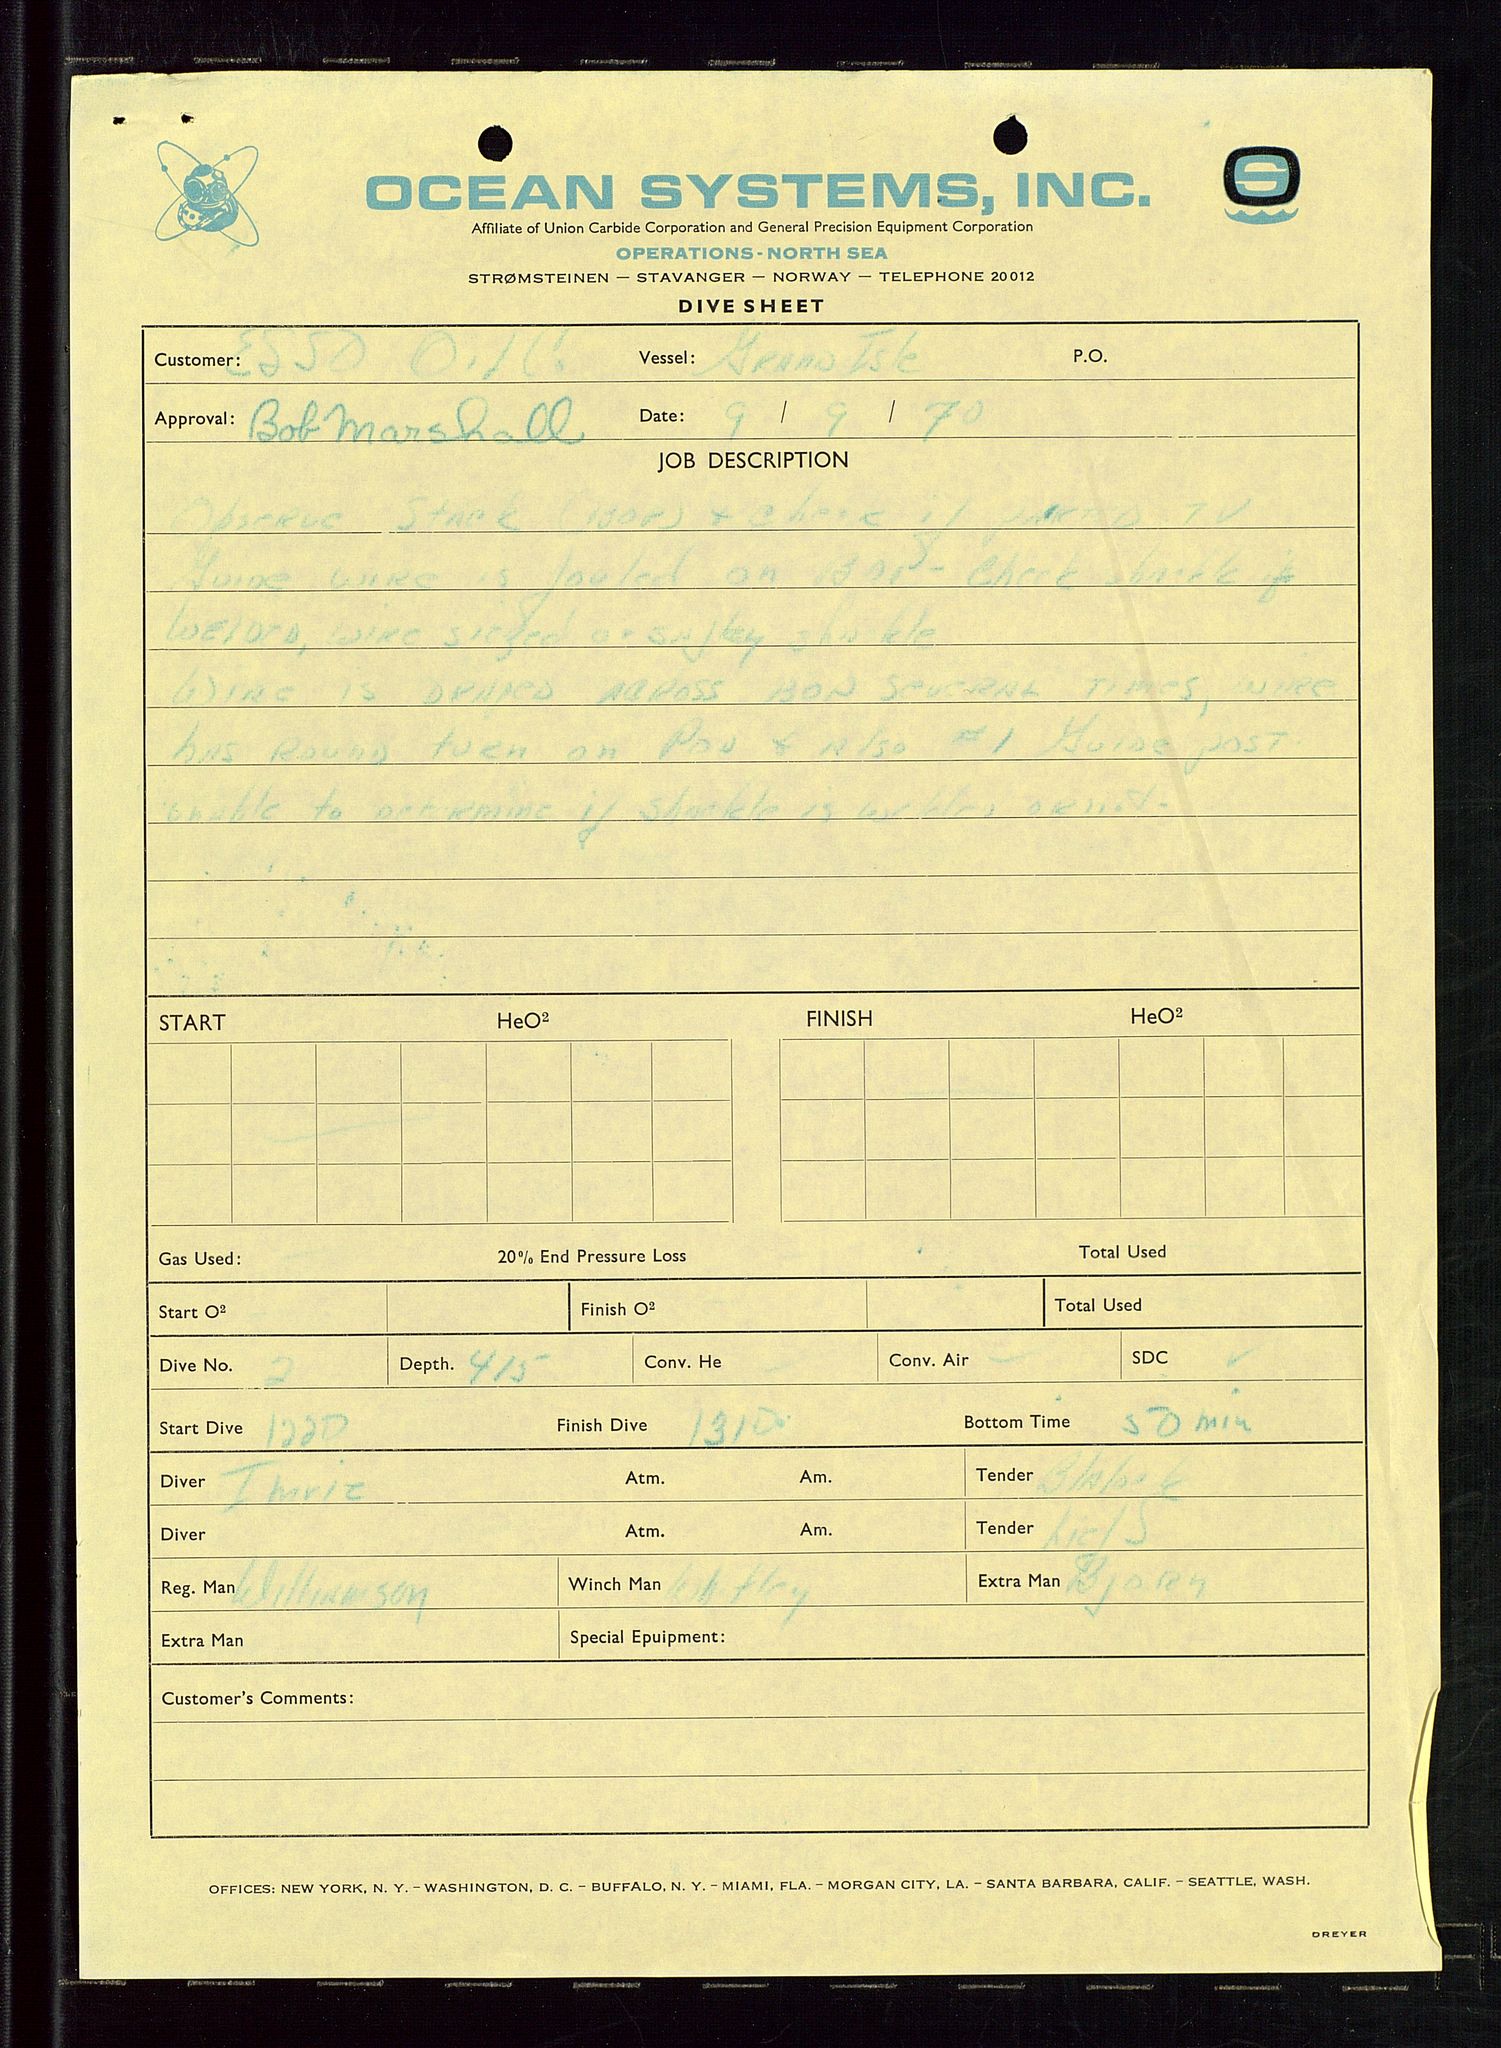 OCEAN SYSTEMS, INC.
Affiliate of Union Carbide Corporation and General Precision Equipment Corporation
OPERATIONS - NORTH SEA
STRØMSTEINEN — STAVANGER — NORWAY — TELEPHONE 20012
DIVE SHEET
Customer: ESSO Oil Co. Vessel: Grand Isle P.O.
Approval: Bob Marshall Date: 9 / 9 / 70
JOB DESCRIPTION
Observe Stack (BOP) & check if parted TV
Guide wire is fouled on BOP - Check shackle if
Welded, wire siezed or saftey shackle
Wire is draped across BOP several times, wire
has Round turn on Pod & also #1 Guide post.
unable to determine if shackle is welded or not.
START HeO² FINISH HeO²
Gas Used: 20% End Pressure Loss Total Used
Start O² Finish O² Total Used
Dive No. 2 Depth. 415 Conv. He – Conv. Air – SDC ✓
Start Dive 1220 Finish Dive 1310 Bottom Time 50 min
Diver Imrie Atm. Am. Tender Blalock
Diver Atm. Am. Tender
Reg. Man Williamson Winch Man Extra Man Bjorn
Extra Man Special Epuipment:
Customer's Comments:
OFFICES: NEW YORK, N. Y. – WASHINGTON, D. C. – BUFFALO, N. Y. – MIAMI, FLA. – MORGAN CITY, LA. – SANTA BARBARA, CALIF. – SEATTLE, WASH.
DREYER